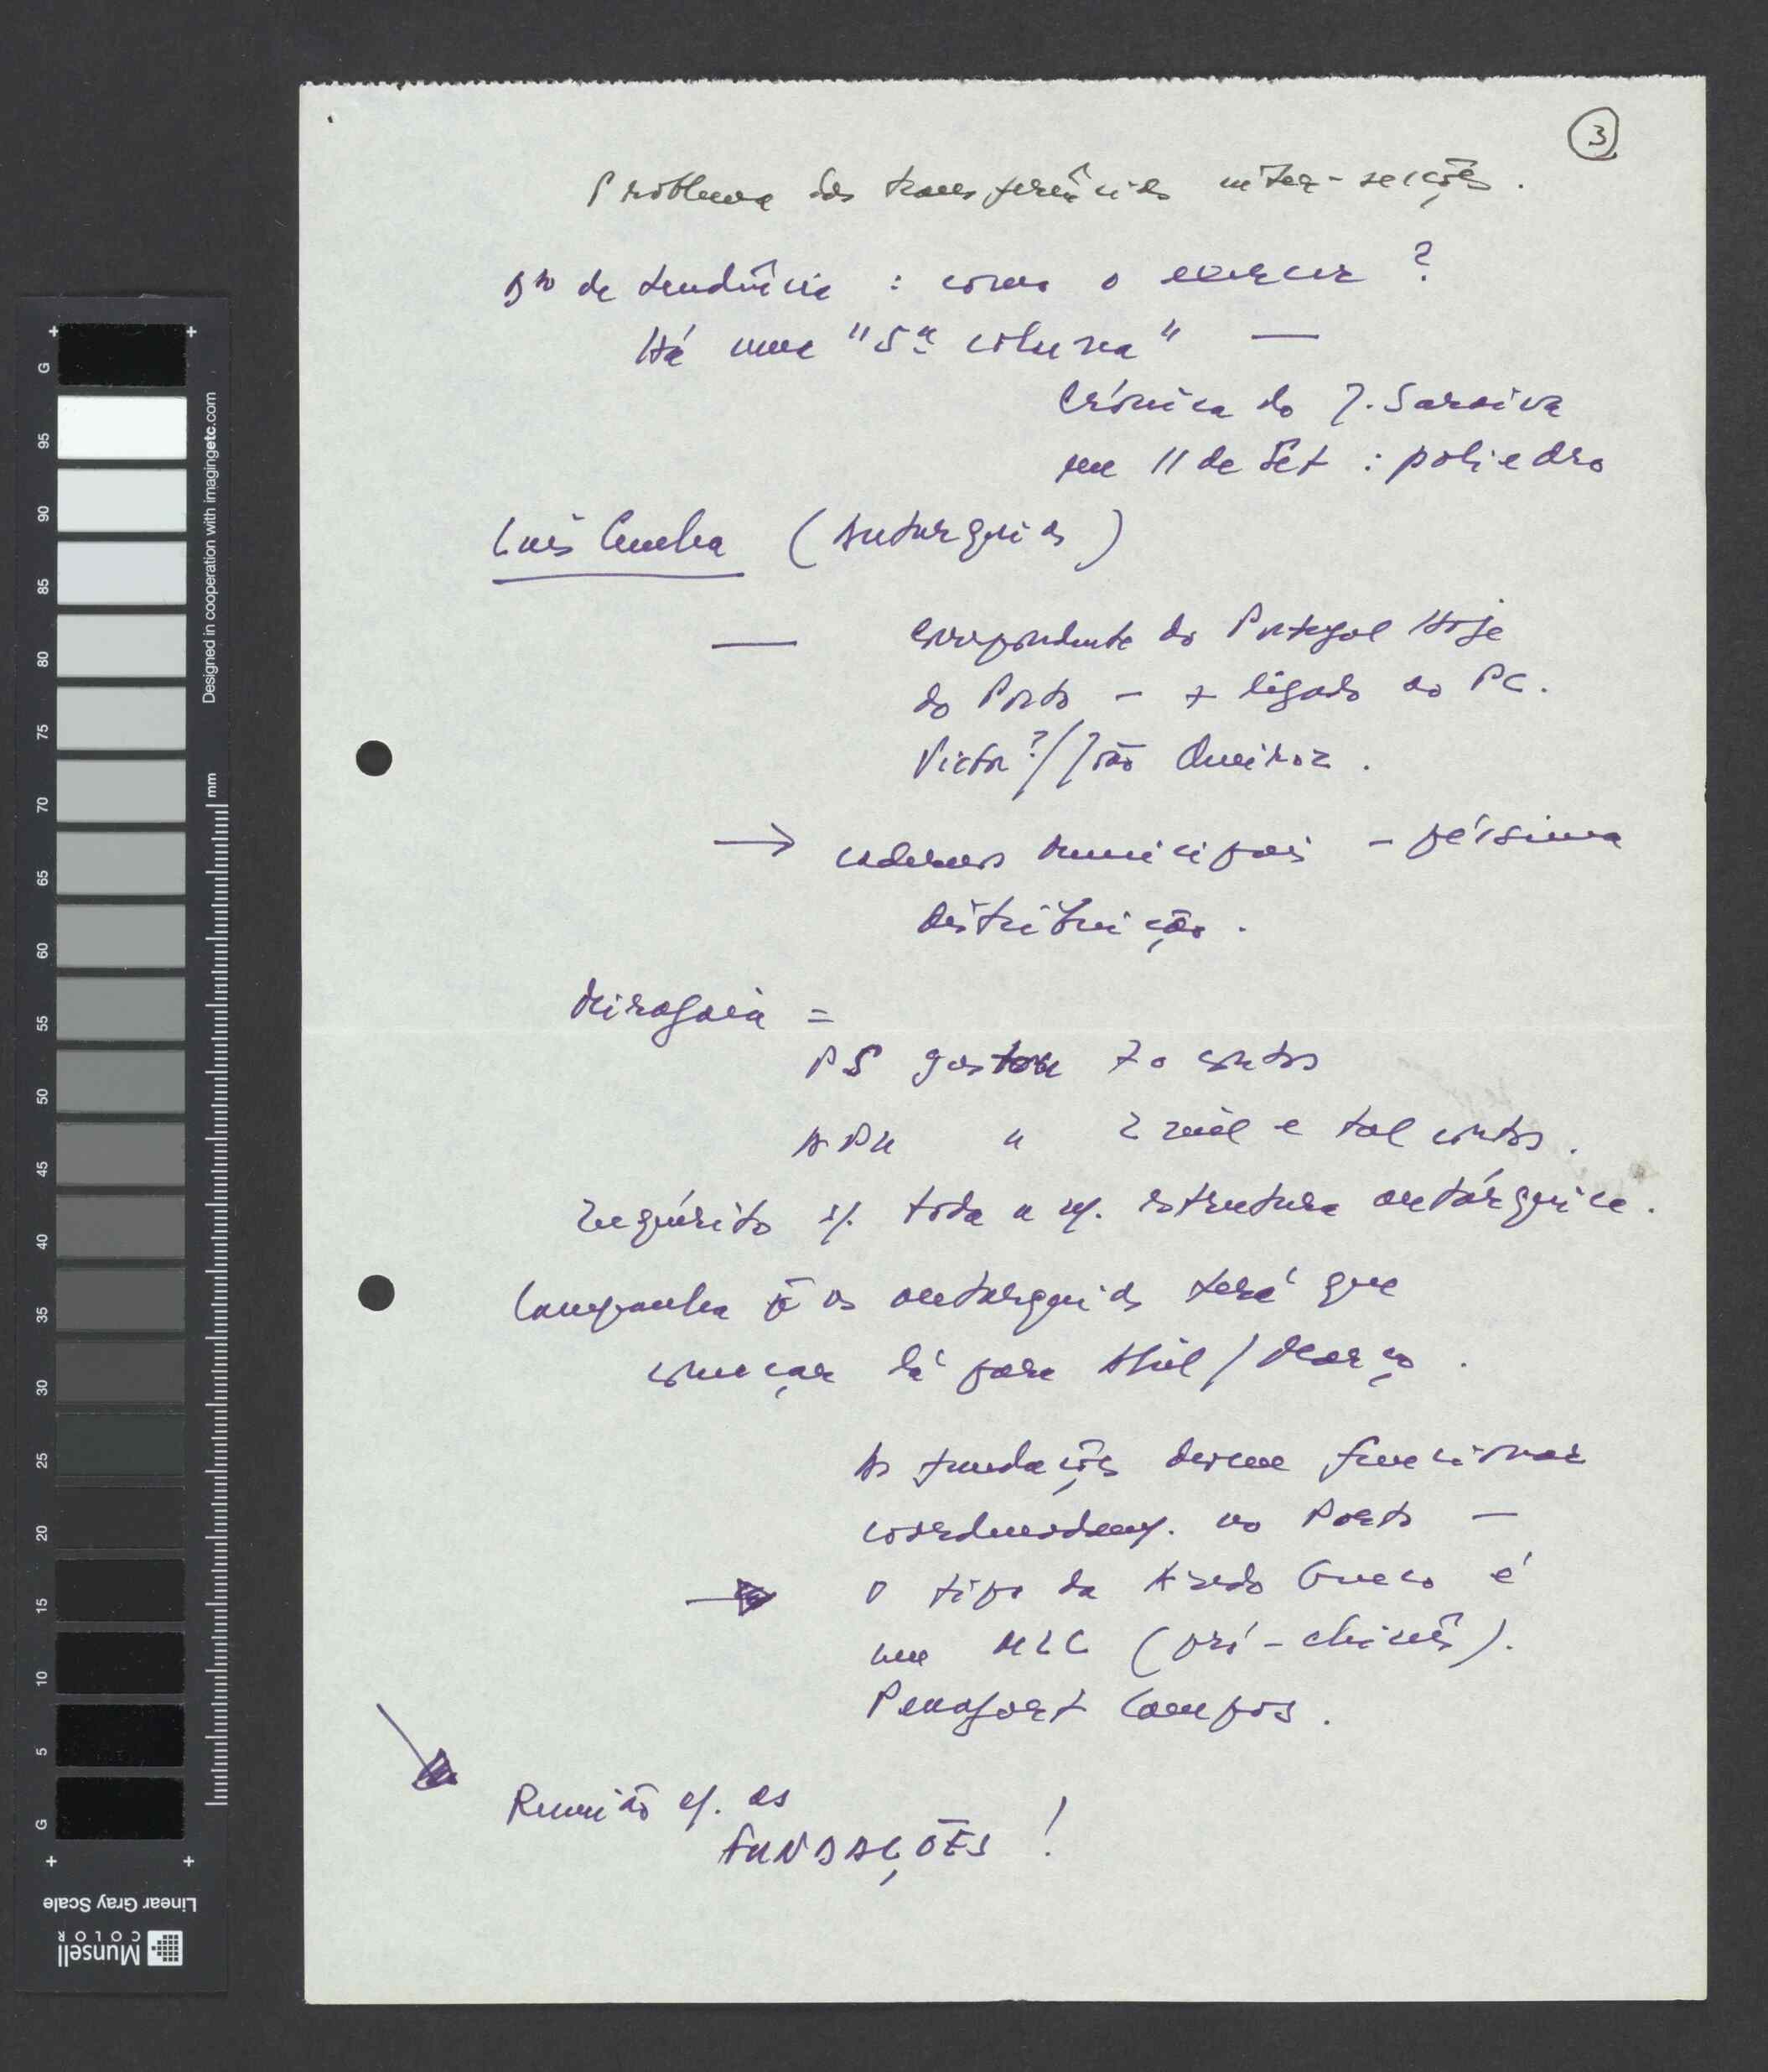 3
Problema das transferências inter-secções.
Dto de tendência : como o exercer ?
Há uma "5ª coluna" —
Crónica do J. Saraiva
em 11 de Set : poliedro
Luís Cunha (Autarquias)
— Correspondente do Portugal Hoje
do Porto - + ligado ao PC.
Victor ?/ João Queiroz.
→ cadernos municipais - péssima
distribuição.
Miragaia =
PS gastou 70 contos
APU " 2 mil e tal contos.
Inquérito s/. toda a n/. estrutura autárquica.
Campanha p̄ as autarquias terá que
começar lá para Abril / Março.
As fundações devem funcionar
coordenadam/. no Porto —
→ O tipo da Azedo Gneco é
um MLC (pró-chinês).
Penafort Campos.
Reunião c/. as
FUNDAÇÕES !
G 95 90 85 80 75 70 65 60 55 50 45 40 35 30 25 20 15 10 5 G
mm
Designed in cooperation with imagingetc.com
Linear Gray Scale
Munsell
COLOR